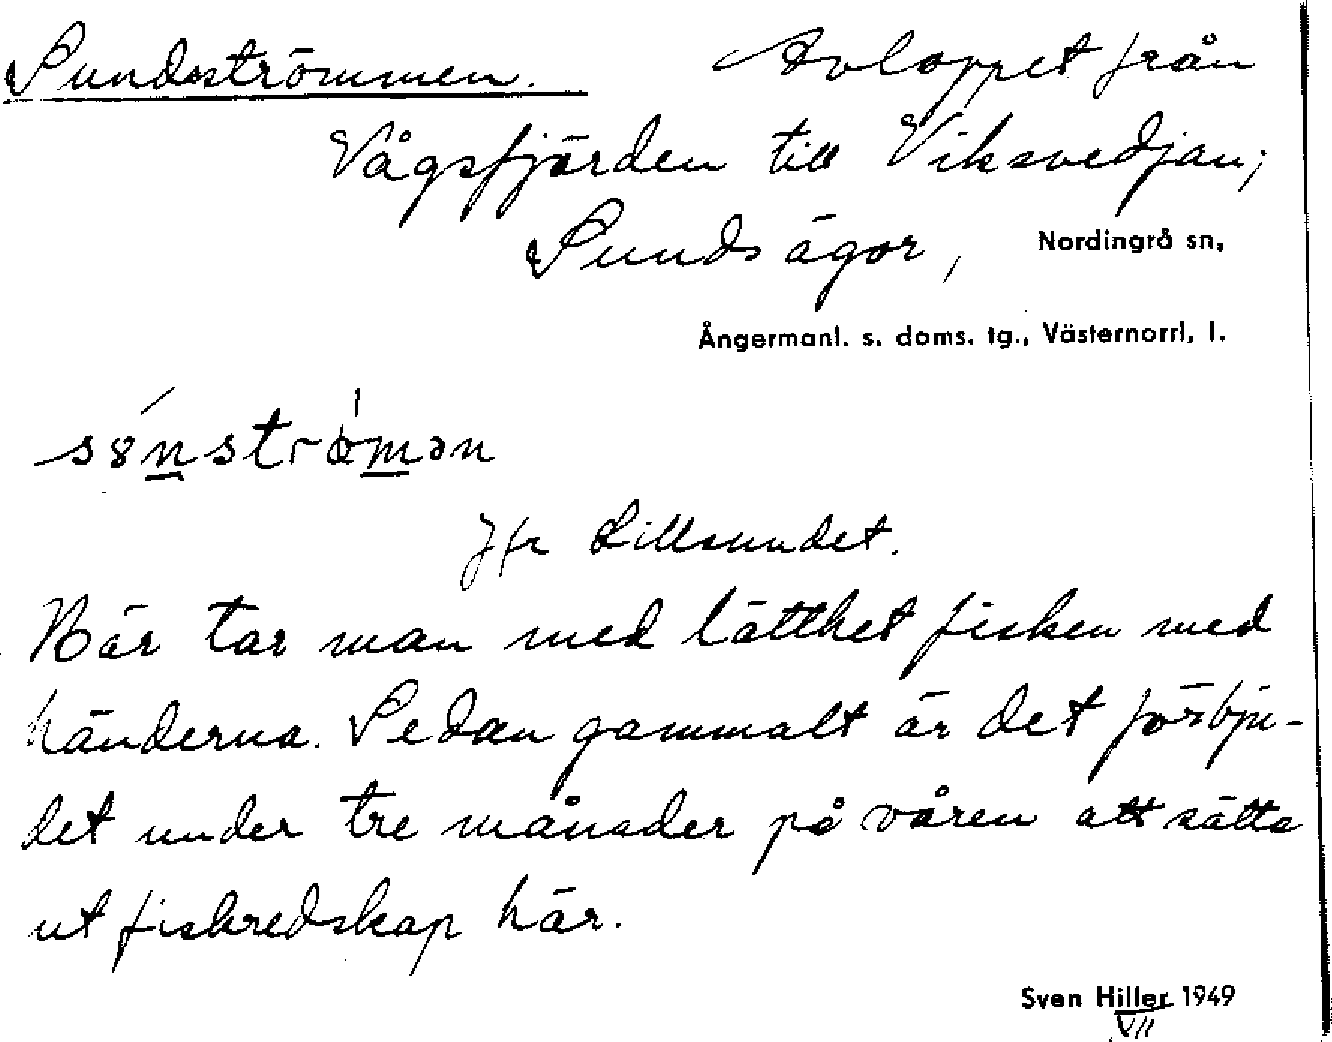 Sundsströmmen. Avloppet från
Vågsfjärden till Viksvedjan;
Sunds ägor, Nordingrå sn,
Ångermanl. s. doms. tg., Västernorrl. l.
Jfr Lillsundet.
När tar man med lätthet fisken med
händerna. Sedan gammalt är det förbju-
det under tre månader på våren att sätta
ut fiskredskap här.
Sven Hiller 1949
VII